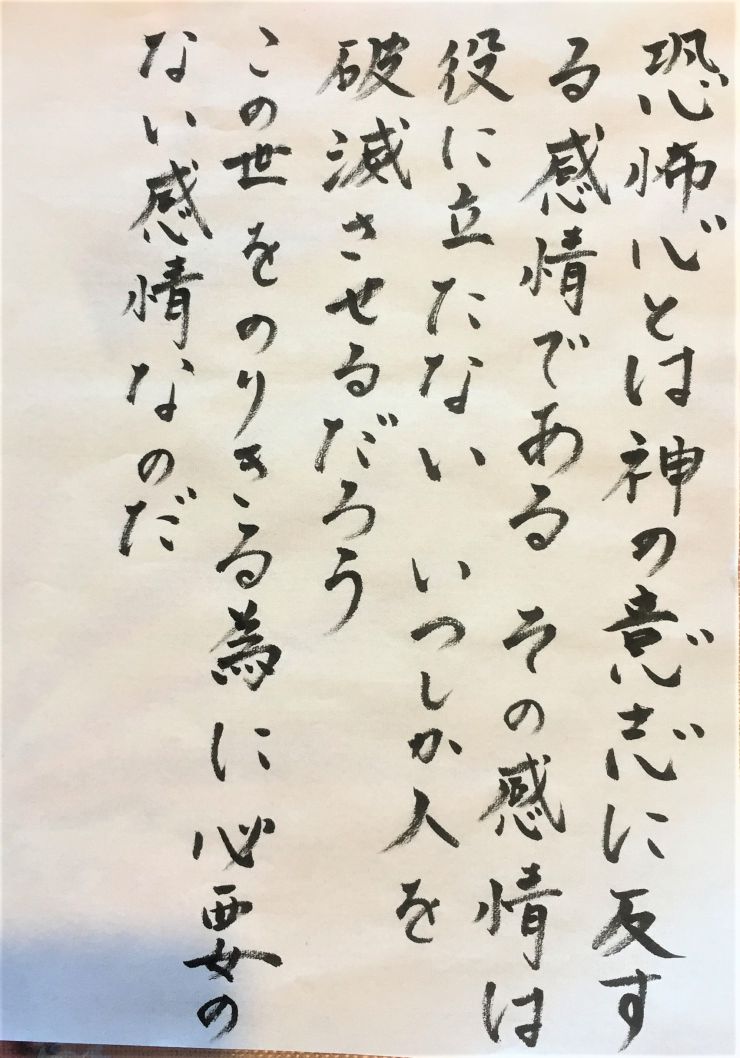 恐怖心とは神の意志に反す
る感情である その感情は
役に立たない いつしか人を
破滅させるだろう
この世をのりきる為に必要の
ない感情なのだ